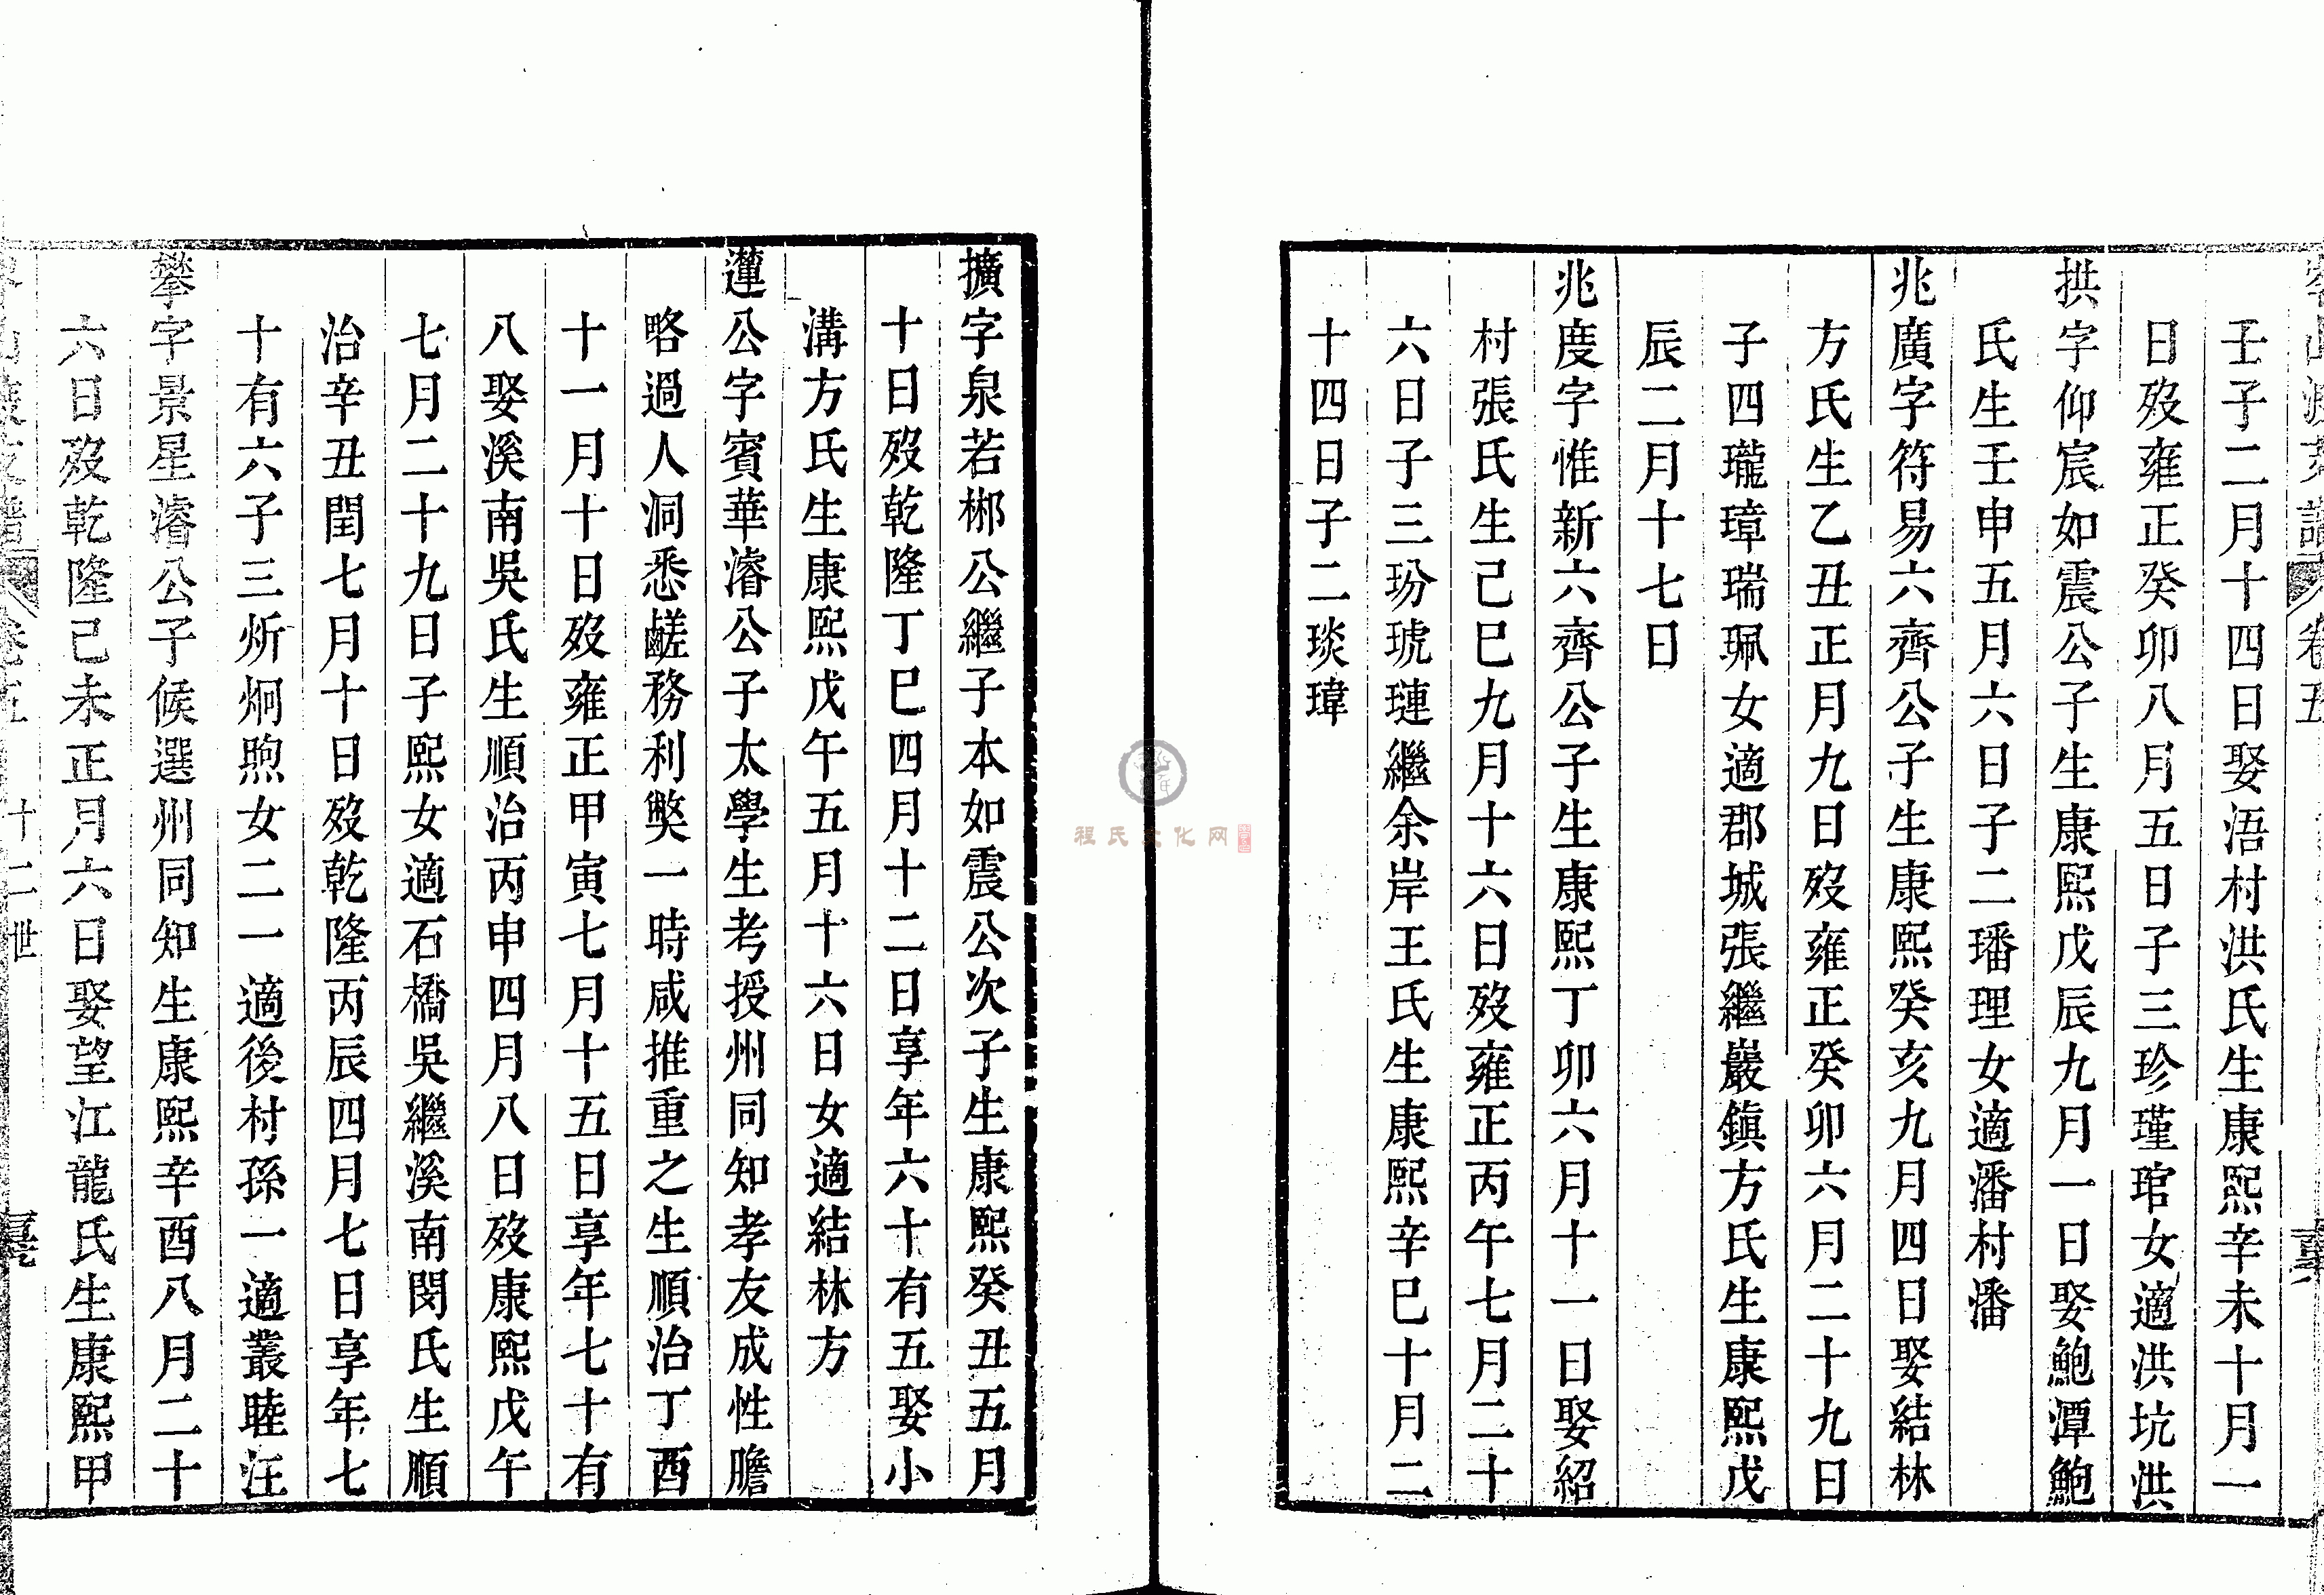 壬子二月十四日娶浯村洪氏生康熙辛未十月一
日歿雍正癸卯八月五日子三珍瑾琯女適洪坑洪
拱字仰宸如震公子生康熙戊辰九月一日娶鮑潭鮑
氏生壬申五月六日子二璠理女適潘村潘
兆廣字符易六齊公子生康熙癸亥九月四日娶結林
方氏生乙丑正月九日歿雍正癸卯六月二十九日
子四瓏璋瑞珮女適郡城張繼巖鎮方氏生康熙戊
辰二月十七日
兆度字惟新六齊公子生康熙丁卯六月十一日娶紹
村張氏生己巳九月十六日歿雍正丙午七月二十
六日子三玢琥璉繼余岸王氏生康熙辛巳十月二
十四日子二琰瑋
擴字泉若郴公繼子本如震公次子生康熙癸丑五月
十日歿乾隆丁巳四月十二日享年六十有五娶小
溝方氏生康熙戊午五月十六日女適結林方
公字賓華濬公子太學生考授州同知孝友成性膽
略過人洞悉鹺務利獘一時咸推重之生順治丁酉
十一月十日歿雍正甲寅七月十五日享年七十有
八娶溪南吳氏生順治丙申四月八日歿康熙戊午
七月二十九日子熙女適石橋吳繼溪南閔氏生順
治辛丑閏七月十日歿乾隆丙辰四月七日享年七
十有六子三炘炯煦女二一適後村孫一適叢睦汪
字景星濬公子候選州同知生康熙辛酉八月二十
六日歿乾隆己未正月六日娶望江龍氏生康熙甲
卷五 十二世
程氏文化网